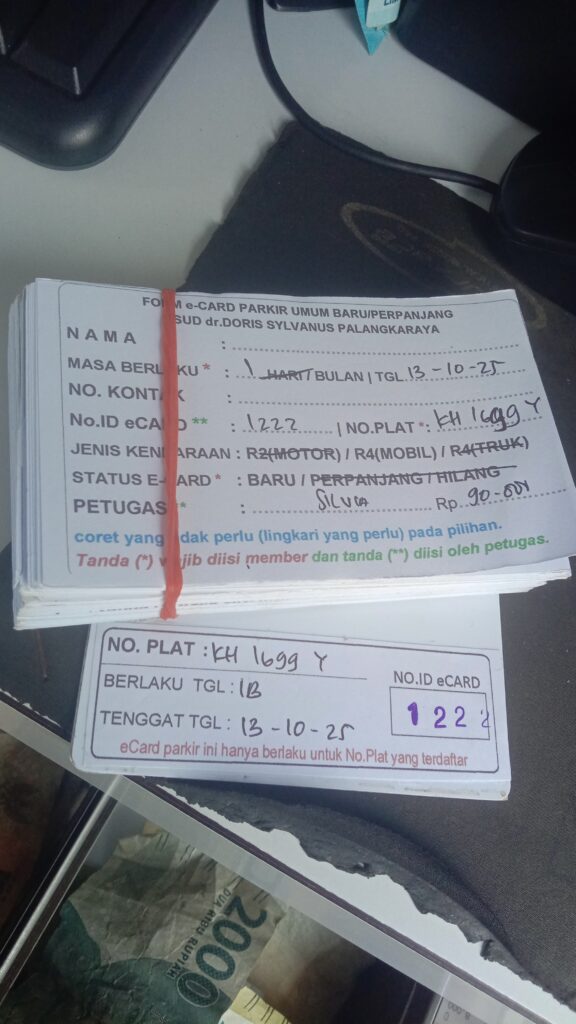 FORM e-CARD PARKIR UMUM BARU/PERPANJANG
RSUD dr.DORIS SYLVANUS PALANGKARAYA
NAMA :
MASA BERLAKU * : 1 HARI / BULAN | TGL. 13-10-25
NO. KONTAK :
No.ID eCARD ** : 1222 | NO.PLAT *: KH 1699 Y
JENIS KENDARAAN : R2(MOTOR) / R4(MOBIL) / R4(TRUK)
STATUS E-CARD * : BARU / PERPANJANG / HILANG
PETUGAS ** : SILVIA Rp. 90.000
coret yang tidak perlu (lingkari yang perlu) pada pilihan.
Tanda (*) wajib diisi member dan tanda (**) diisi oleh petugas.
NO. PLAT : KH 1699 Y
BERLAKU TGL : 1B
TENGGAT TGL : 13-10-25
NO.ID eCARD
1222
eCard parkir ini hanya berlaku untuk No.Plat yang terdaftar
2000
DUA RIBU RUPIAH